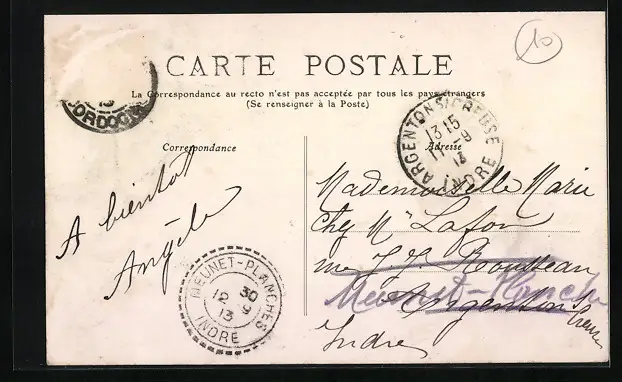 10
CARTE POSTALE
La Correspondance au recto n'est pas acceptée par tous les pays étrangers
(Se renseigner à la Poste)
Correspondance
Adresse
A bientôt
Angèle
Mademoiselle Marie
Chez Mr Lafon
rue J. J. Rousseau
Meunet-Planches
Argenton s/ Creuse
Indre
13
DORDOGNE
ARGENTON S/CREUSE
13 15
11-9
13
INDRE
MEUNET-PLANCHES
30
12 9
13
INDRE